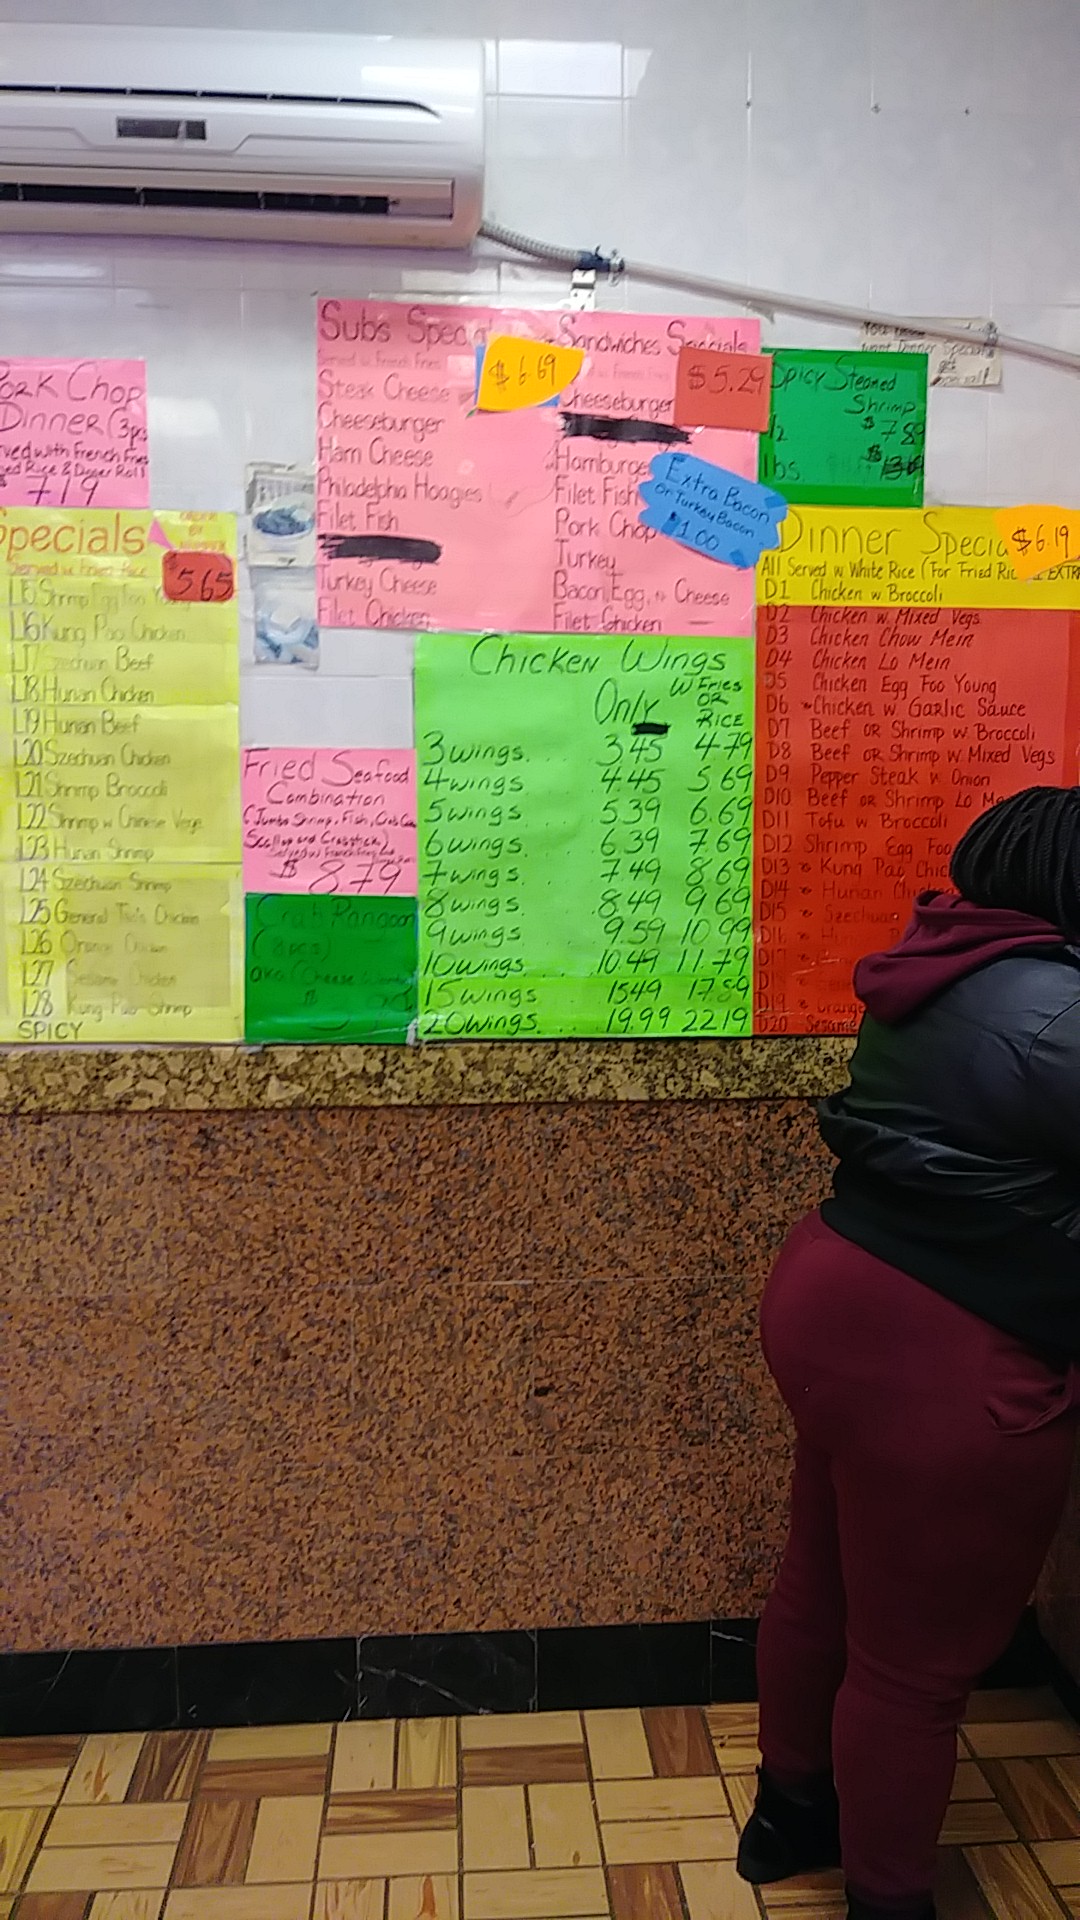 Pork Chop
Dinner (3pc
rved with French Fries
ed Rice & Dinner Roll
$ 7 19
Specials
Served w. Fried Rice
$ 5.65
L15 Shrimp Egg Foo Young
L16 Kung Pao Chicken
L17 Szechuan Beef
L18 Hunan Chicken
L19 Hunan Beef
L20 Szechuan Chicken
L21 Shrimp Broccoli
L22 Shrimp w Chinese Vege
L23 Hunan Shrimp
L24 Szechuan Shrimp
L25 General Tso's Chicken
L26 Orange Chicken
L27 Sesame Chicken
L28 Kung Pao Shrimp
SPICY
Subs Special
Served w. French Fries
$ 6.69
Steak Cheese
Cheeseburger
Ham Cheese
Philadelpha Hoagies
Filet Fish
Turkey Cheese
Filet Chicken
Sandwiches Specials
$ 5.29
Cheeseburger
Hamburger
Filet Fish
Pork Chop
Turkey
Bacon, Egg, n Cheese
Filet Chicken
Extra Bacon
or Turkey Bacon
$1.00
Fried Seafood
Combination
(Jumbo Shrimp, Fish, Crab Cake
Scallop and Crabstick)
Served w. French Fries
$ 8.79
Crab Rangoon
(8pcs)
aka (Cheese Wonton)
$
Chicken Wings
Only W Fries
OR
RICE
3 wings. . . . 3.45 4.79
4 wings . . . . 4.45 5.69
5 wings . . . . 5.39 6.69
6 wings . . . . 6.39 7.69
7 wings . . . . 7.49 8.69
8 wings. . . . 8.49 9.69
9 wings. . . . 9.59 10.99
10 wings. . . . 10.49 11.79
15 wings . . . 1549 17.89
20 wings. . . . 19.99 22.19
Spicy Steamed
Shrimp
$ 7.89
lbs $
You
want Dinner Special
Dinner Specia
$ 6.19
All Served w White Rice (For Fried Ric EXTR
D1 Chicken w Broccoli
D2 Chicken w. Mixed Vegs
D3 Chicken Chow Mein
D4 Chicken Lo Mein
D5 Chicken Egg Foo Young
D6 Chicken w Garlic Sauce
D7 Beef OR Shrimp w. Broccoli
D8 Beef OR Shrimp w. Mixed Vegs
D9 Pepper Steak w. Onion
D10 Beef OR Shrimp Lo Me
D11 Tofu w Broccoli
D12 Shrimp Egg Foo
D13 Kung Pao Chic
D14 Hunan Chicken
D15 Szechuan
D16
D17
D19 Orange
D20 Sesame